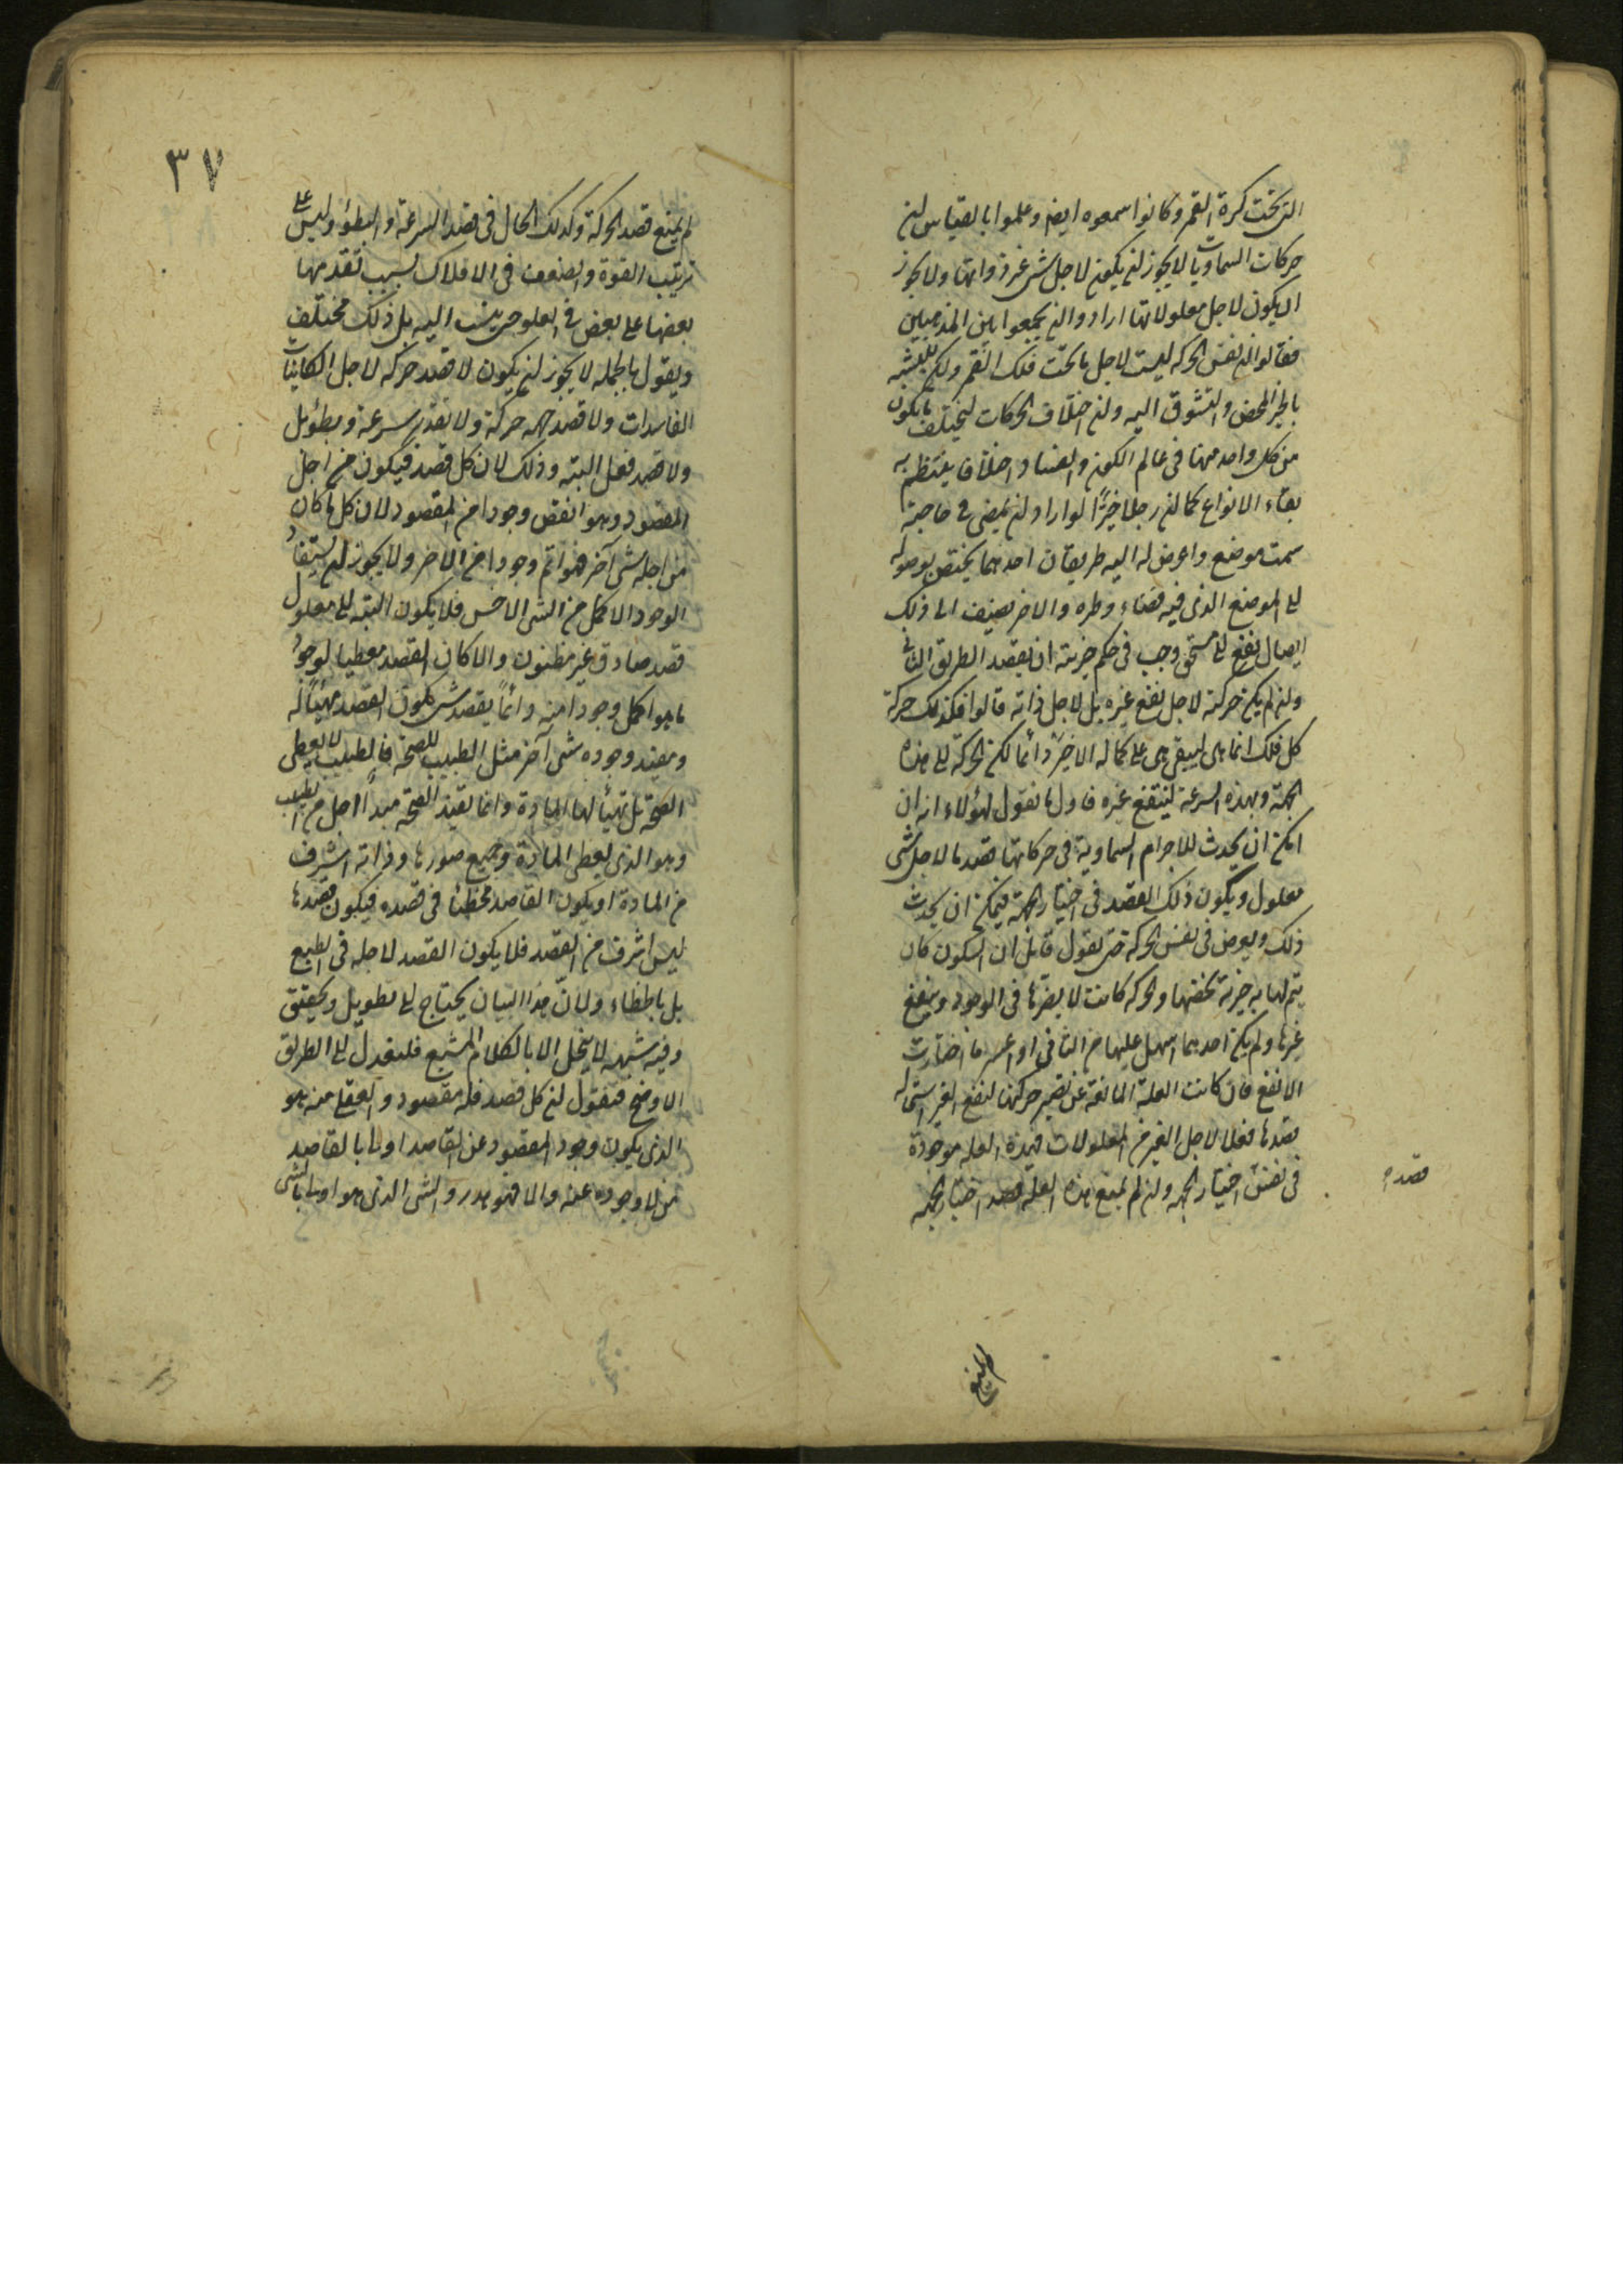 التى تحت كرة القمر وكانوا سمعوه ايضا وعلموا بالقياس ان
حركات السماويات لا يجوز ان يكون لاجل شئ غير ذواتها ولا يجوز
ان يكون لاجل معلولاتها ارادوا ان يجمعوا بين المذهبين
فقالوا ان نفس الحركه ليست لاجل ما تحت فلك القمر ولكن للتشبه
بالخير المحض والتشوق اليه وان اختلاف الحركات ليختلف ما يكون
من كل واحد منها فى عالم الكون والفساد اختلافا ينتظم به
بقاء الانواع كما ان رجلا خيّرًا لو اراد ان يمضى فى حاجته
سمت موضع واعرض له اليه طريقان احدهما يختص بوصوله
الى الموضع الذى فيه قضاء وطره والاخر يضيف الى ذلك
ايصال نفع الى مستحق وجب فى حكم خيريته ان يقصد الطريق الثانى
وان لم يكن حركته لاجل نفع غيره بل لاجل ذاته قالوا فكذلك حركة
كل فلك انما هى ليبقى هى على كماله الاخير دائما لكن الحركة الى هذه
الجهة وبهذه السرعة لينتفع غيره فاول ما نقول لهؤلاء انه ان
امكن ان يحدث للاجرام السماوية فى حركاتها قصد ما لاجل شئ
معلول ويكون ذلك القصد فى اختيار الجهة فيمكن ان يحدث
ذلك ويعرض فى نفس الحركة حتى يقول قائل ان السكون كان
يتم لها به خيرية تخصها والحركه كانت لا يضرها فى الوجود وينفع
غيرها ولم يكن احدهما اسهل عليها من الثانى او اعسر فاختارت
الانفع فان كانت العلة المانعة عن تصير حركتها لنفع الغير استحاله
قصدها فعلا لاجل الغير من المعلولات فهذه العله موجودة
فى نفس اختيار الجهه وان لم يمنع هذه العله قصد اختيار الجهه
قصده
لم يمنع
٣٧
لم يمنع قصد الحركة وكذلك الحال فى قصد السرعة والبطؤ وليس على
ترتيب القوة والضعف فى الافلاك بسبب تقدمها
بعضها على بعض فى العلو حتى ينسب اليه بل ذلك مختلف
ويقول بالجمله لا يجوز ان يكون لا قصد حركه لاجل الكاينات
الفاسدات ولا قصد جهه حركة ولا تقدير سرعة وبطؤ بل
ولا قصد فعل البته وذلك لان كل قصد فيكون من اجل
المقصود وهو انقص وجودا من المقصود لان كل ما كان
من اجله شئ آخر فهو اتم وجودا من الاخر ولا يجوز ان يستفاد
الوجود الاكمل من الشئ الاخس فلا يكون البته الى معلول
قصد صادق غير مظنون والا كان القصد معطيا لوجود
ما هو اكمل وجودا منه وانما يقصد شئ يكون القصد مهيئا له
ومفيد وجوده شئ آخر مثل الطبيب للصحة فالطبيب لا يعطى
الصحة بل تهيأ لها المادة وانما يفيد الصحة مبدأ اجل من الطبيب
وهو الذى يعطى المادة وجميع صورها وذاته اشرف
من المادة او يكون القاصد مخطئا فى قصده فيكون قصدها
ليس اشرف من القصد فلا يكون القصد لاجله فى الطبع
بل بالخطاء ولانّ هذا البيان يحتاج الى تطويل وتحقيق
وفيه شبهه لا ينحل الا بالكلام المشبع فلنعدل الى الطريق
الاوضح فنقول ان كل قصد فله مقصود والعقلى منه هو
الذى يكون وجود المقصود عن القاصد اولى بالقاصد
من لا وجوده عنه والا فهو هدر والشئ الذى هو اولى بالشئ